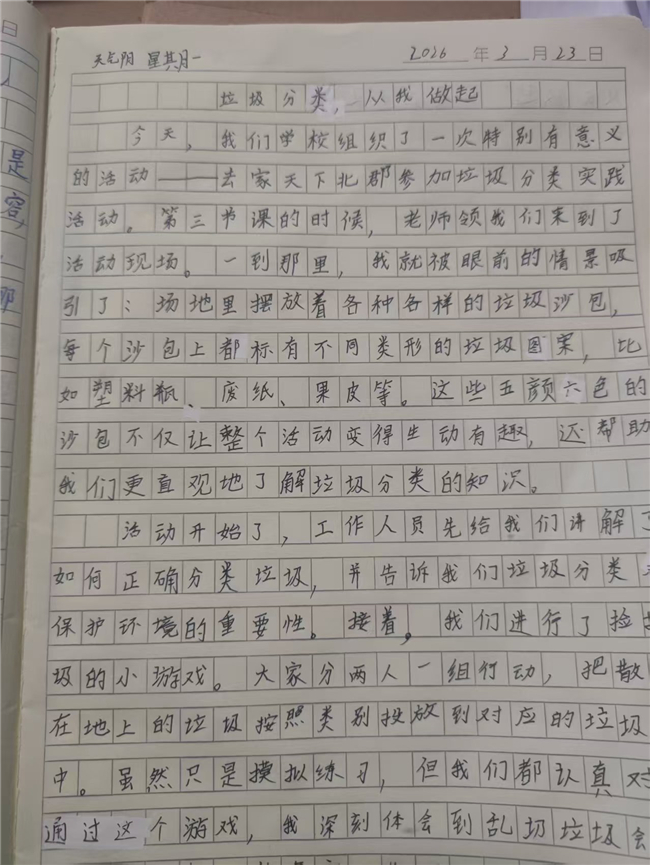 天气阴 星期一 2026年3月23日
垃圾分类,从我做起
今天,我们学校组织了一次特别有意义
的活动——去家天下北郡参加垃圾分类实践
活动。第三节课的时候,老师领我们来到了
活动现场。一到那里,我就被眼前的情景吸
引了:场地里摆放着各种各样的垃圾沙包,
每个沙包上都标有不同类形的垃圾图案,比
如塑料瓶、废纸、果皮等。这些五颜六色的
沙包不仅让整个活动变得生动有趣,还帮助
我们更直观地了解垃圾分类的知识。
活动开始了,工作人员先给我们讲解了
如何正确分类垃圾,并告诉我们垃圾分类
保护环境的重要性。接着,我们进行了捡
圾的小游戏。大家分两人一组行动,把散
在地上的垃圾按照类别投放到对应的垃圾
中。虽然只是摸拟练习,但我们都认真对
通过这个游戏,我深刻体会到乱扔垃圾会
是
容
那
日